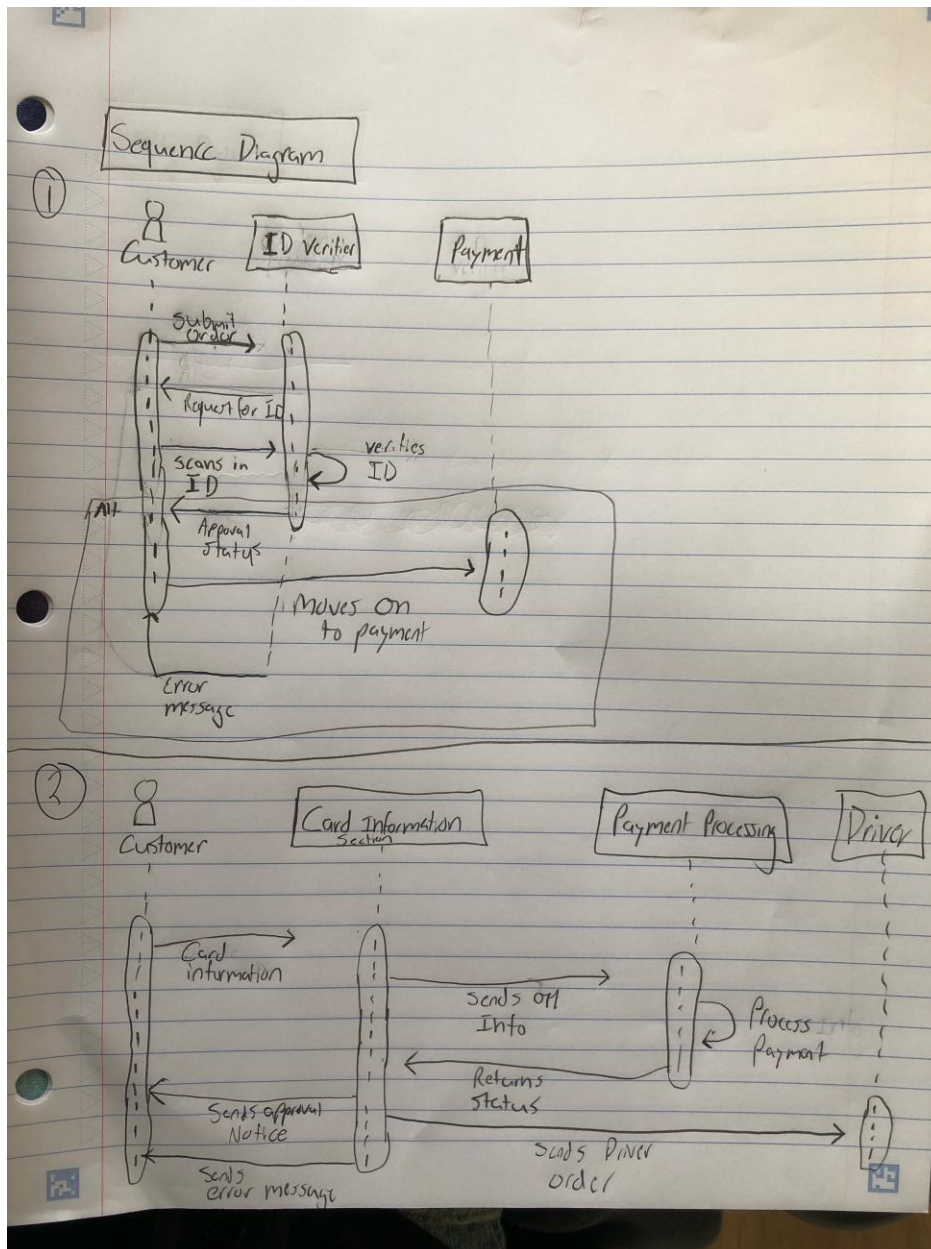 Sequence Diagram
1
Customer
ID Verifier
Payment
Submit
order
Request for ID
scans in
ID
verifies
ID
Alt
Apporal
status
Moves on
to payment
Error
message
2
Customer
Card Information
Section
Payment Processing
Driver
Card
information
Sends off
Info
Process
Payment
Returns
status
Sends approval
Notice
Sends Driver
order
Sends
error message